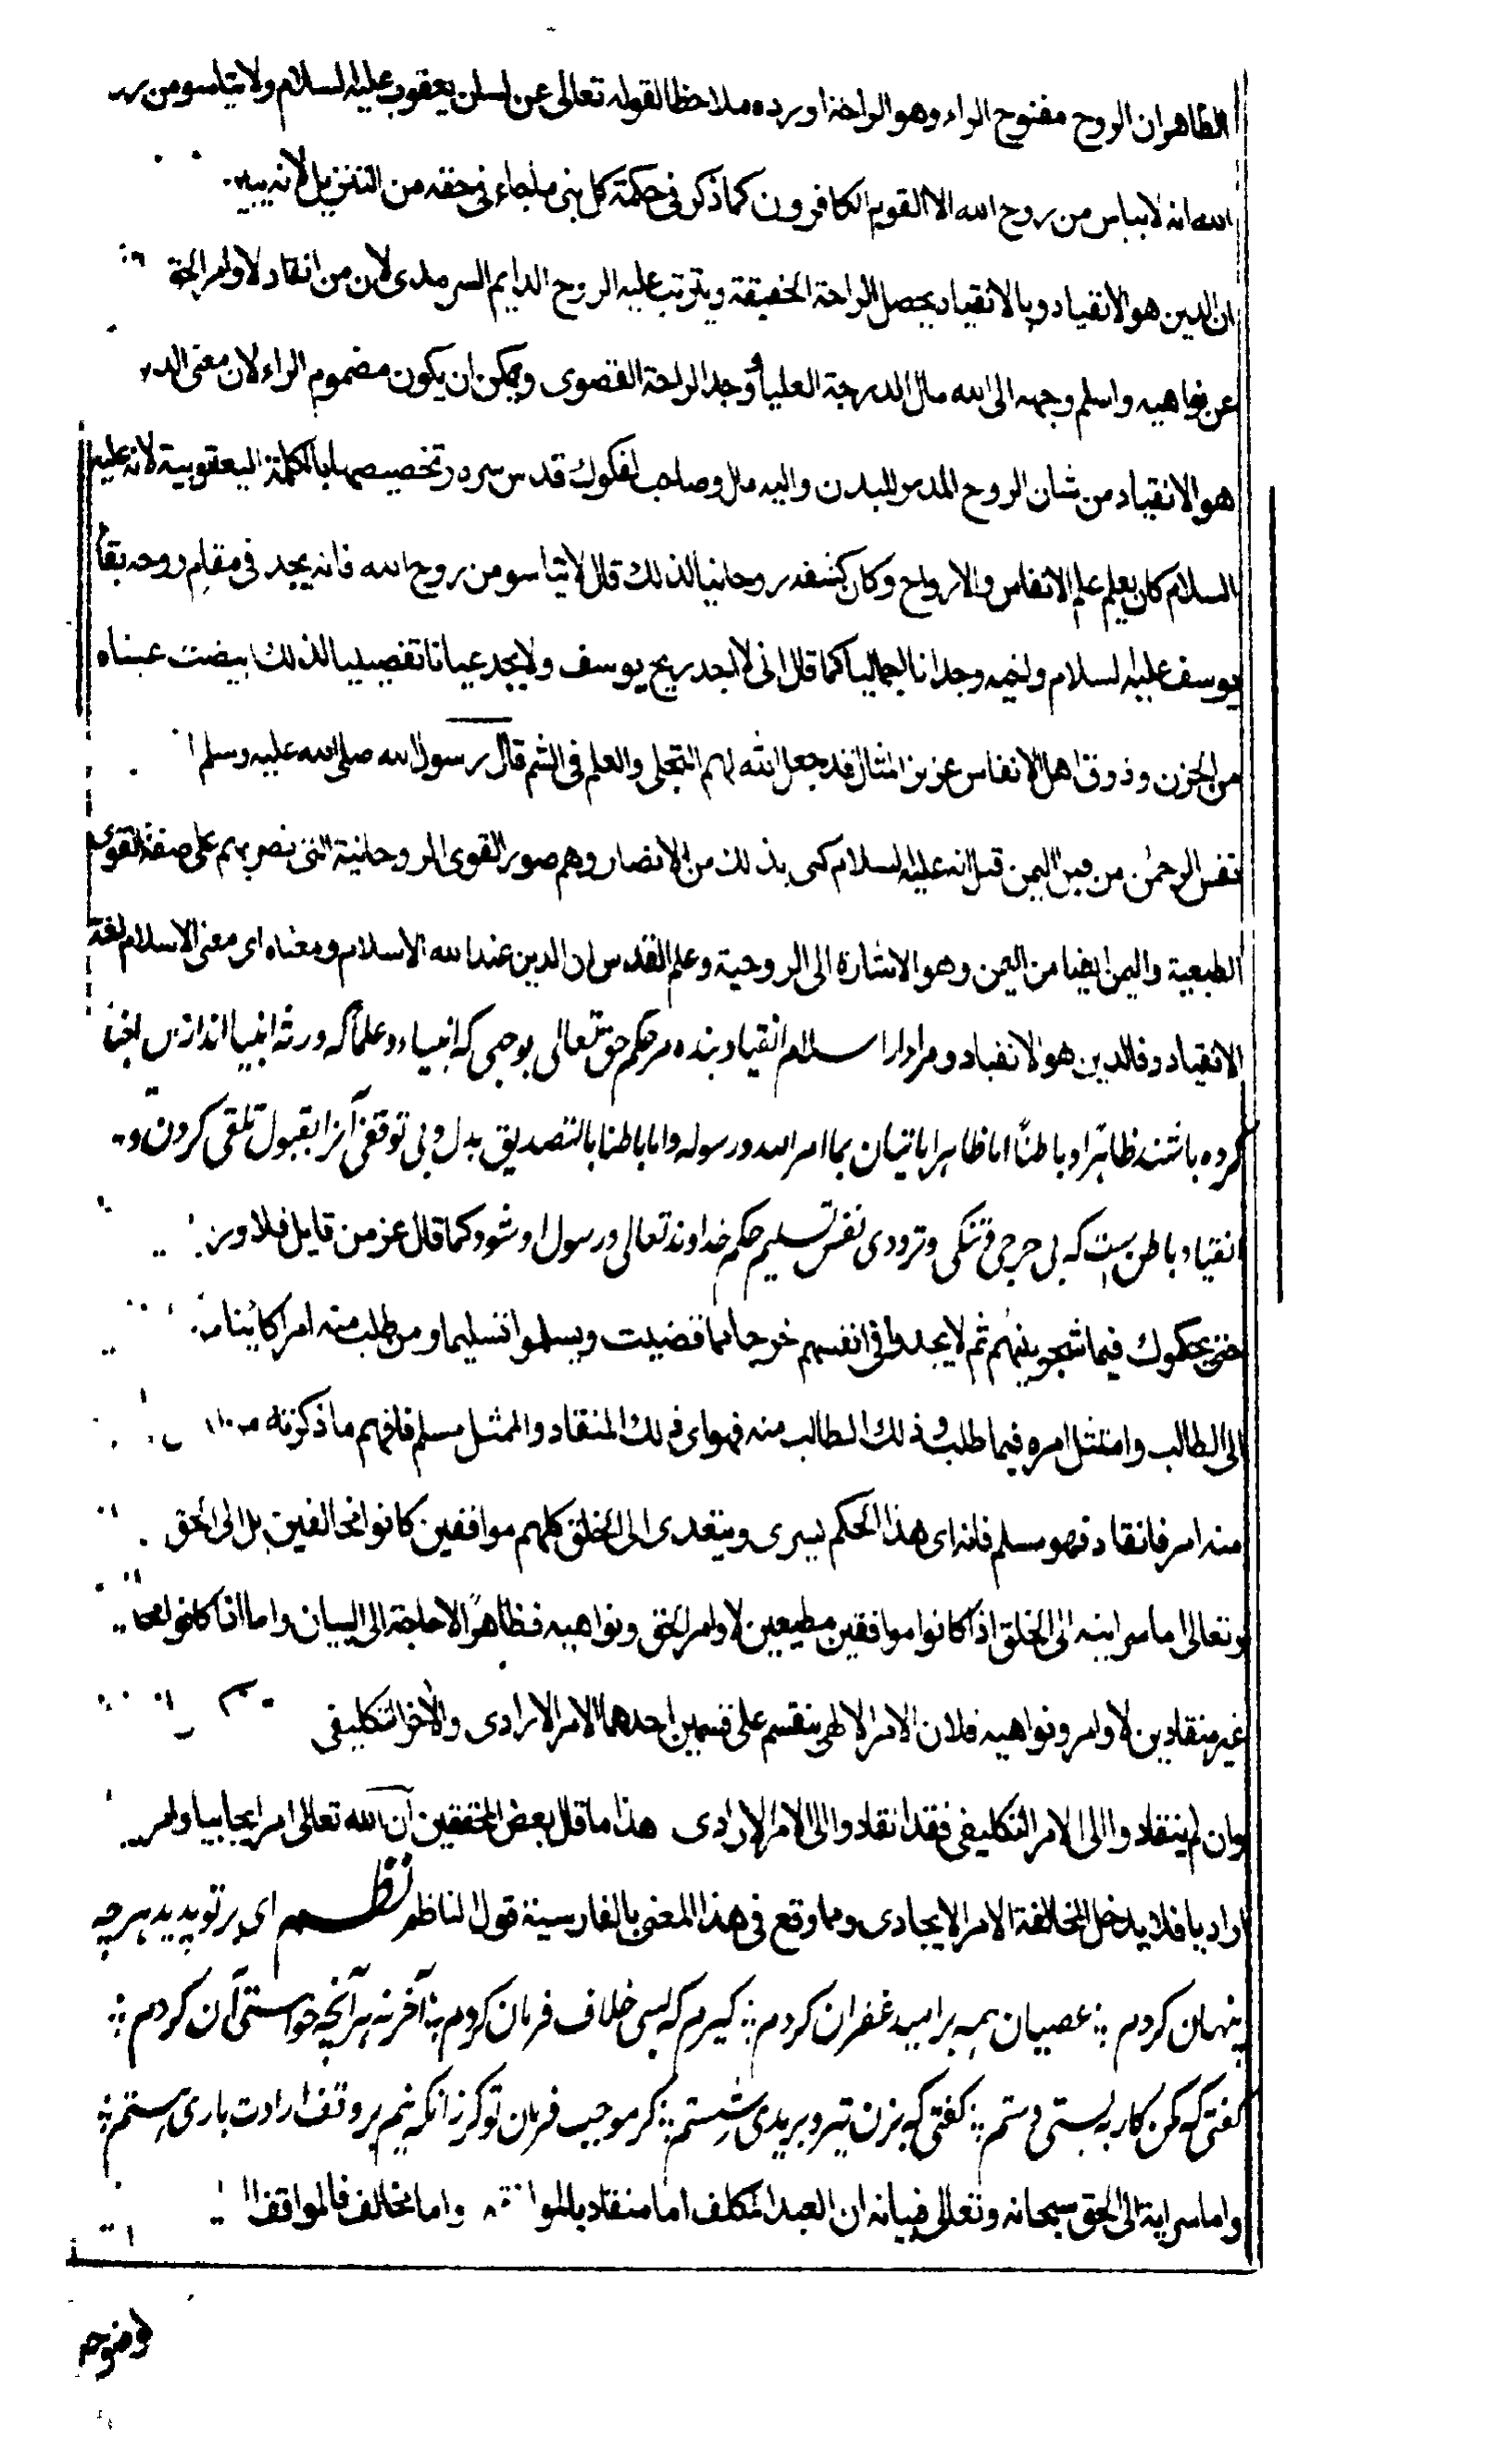 الظاهر ان الروح مفتوح الراء وهو الراحة اورده ملاحظا لقوله تعالى عن لسان يعقوب عليه السلام ولا تيأسو من
الله انه لا ييأس من روح الله الا القوم الكافرون كما ذكر في حكمة كل نبي ما جاء في حقه من التنزيل لانه
ان الدين هو الانقياد وبالانقياد يحصل الراحة الحقيقة ويترتب عليه الروح الدايم السرمدى لان من انقاد لاوامر الحق
عن نواهيه واسلم وجهه الى الله مال الدرجة العليا وجد الراحة القصوى ويمكن ان يكون مضموم الراء لان معنى
هو الانقياد من شان الروح المدبر للبدن واليه مال صاحب الفكوك قدس سره وتخصيصها بالكلمة اليعقوبية لانه عليه
السلام كان يعلم علم الانفاس والارواح وكان كشفه روحانيا لذلك قال لا تيأسو من روح الله فانه يجد في مقام روحه بقأ
يوسف عليه السلام واخيه وجدانا اجماليا كما قال انى لاجد ريح يوسف ولا يجد عيانا تفصيليا لذلك ابيضت عيناه
من الحزن وذوق اهل الانفاس عزيز المثال قد جعل الله لهم التجلى والعلم فى الشم قال رسول الله صلى الله عليه وسلم
نفس الرحمن من قبل اليمن قيل انه عليه السلام كنى بذلك من الانصار وهم صور القوى الروحانية التى نصر بهم على صفة القوى
الطبعية واليمن ايضا من اليمن وهو الاشارة الى الروحية وعلم القدس ان الدين عند الله الاسلام ومعناه اى معنى الاسلام لغة
الانقياد فالدين هو الانقياد ومراد از اسلام انقياد بنده مر حكم حق تعالى بوجهى كه انبياء وعلما كه ورثه انبيا اند ازس
كرده باشند ظاهرا وباطنا اما ظاهرا باتيان بما امر الله ورسوله واما باطنا بالتصديق بدل وبى توقفى آنرا بقبول تلقى كردن و
انقياد باطن است كه بى حرجى وتنگى وترددى نفس تسليم حكم خداوند تعالى ورسول او شود كما قال عز من قايل فلا
حتى يحكموك فيما شجر بينهم ثم لا يجدوا فى انفسهم حرجا مما قضيت ويسلموا تسليما ومن طلب منه امر كائنا
الى الطالب وامتثل امره فيما طلب ذلك الطالب منه فهو اى ذلك المنقاد والممثل مسلم فافهم ما ذكرته
منه امر فانقاد فهو مسلم فانه اى هذا الحكم يسرى ويتعدى الى الخلق كلهم موافقين كانوا مخالفين بل الى الحق
وتعالى اما سرايته الى الخلق اذا كانوا موافقين مطيعين لاوامر الحق ونواهيه فظاهر الا حاجة الى البيان واما اذا كانوا
غير منقادين لاوامر ونواهيه فلان الامر الالهى ينقسم على قسمين احدهما الامر الارادى والآخر التكليفى
وان لم ينقادوا الى الامر التكليفى فقد انقادوا الى الامر الارادى هذا ما قال بعض المحققين ان الله تعالى امر ايجابيا وامر
ارادبا فلا يدخل المخالفة الامر الايجادى ومما وقع فى هذا المعنى بالفارسية قول الناظم نظم اى بر تو پديد هر چه
پنهان كردم ؛ عصيان همه بر اميد غفران كردم ؛ گيرم كه بسى خلاف فرمان كردم ؛ آخر نه هر آنچه خواستى آن كردم ؛
گفتى كه مكن كار به بستى دستم ؛ گفتى كه بزن تير وبريدى شستم ؛ گر موجب فرمان تو گر زانكه نيم بر وقف ارادت بارى هستم ؛
واما سراية الى الحق سبحانه وتعالى فبيانه ان العبد المكلف اما منقاد بالموا واما مخالف فالموافق